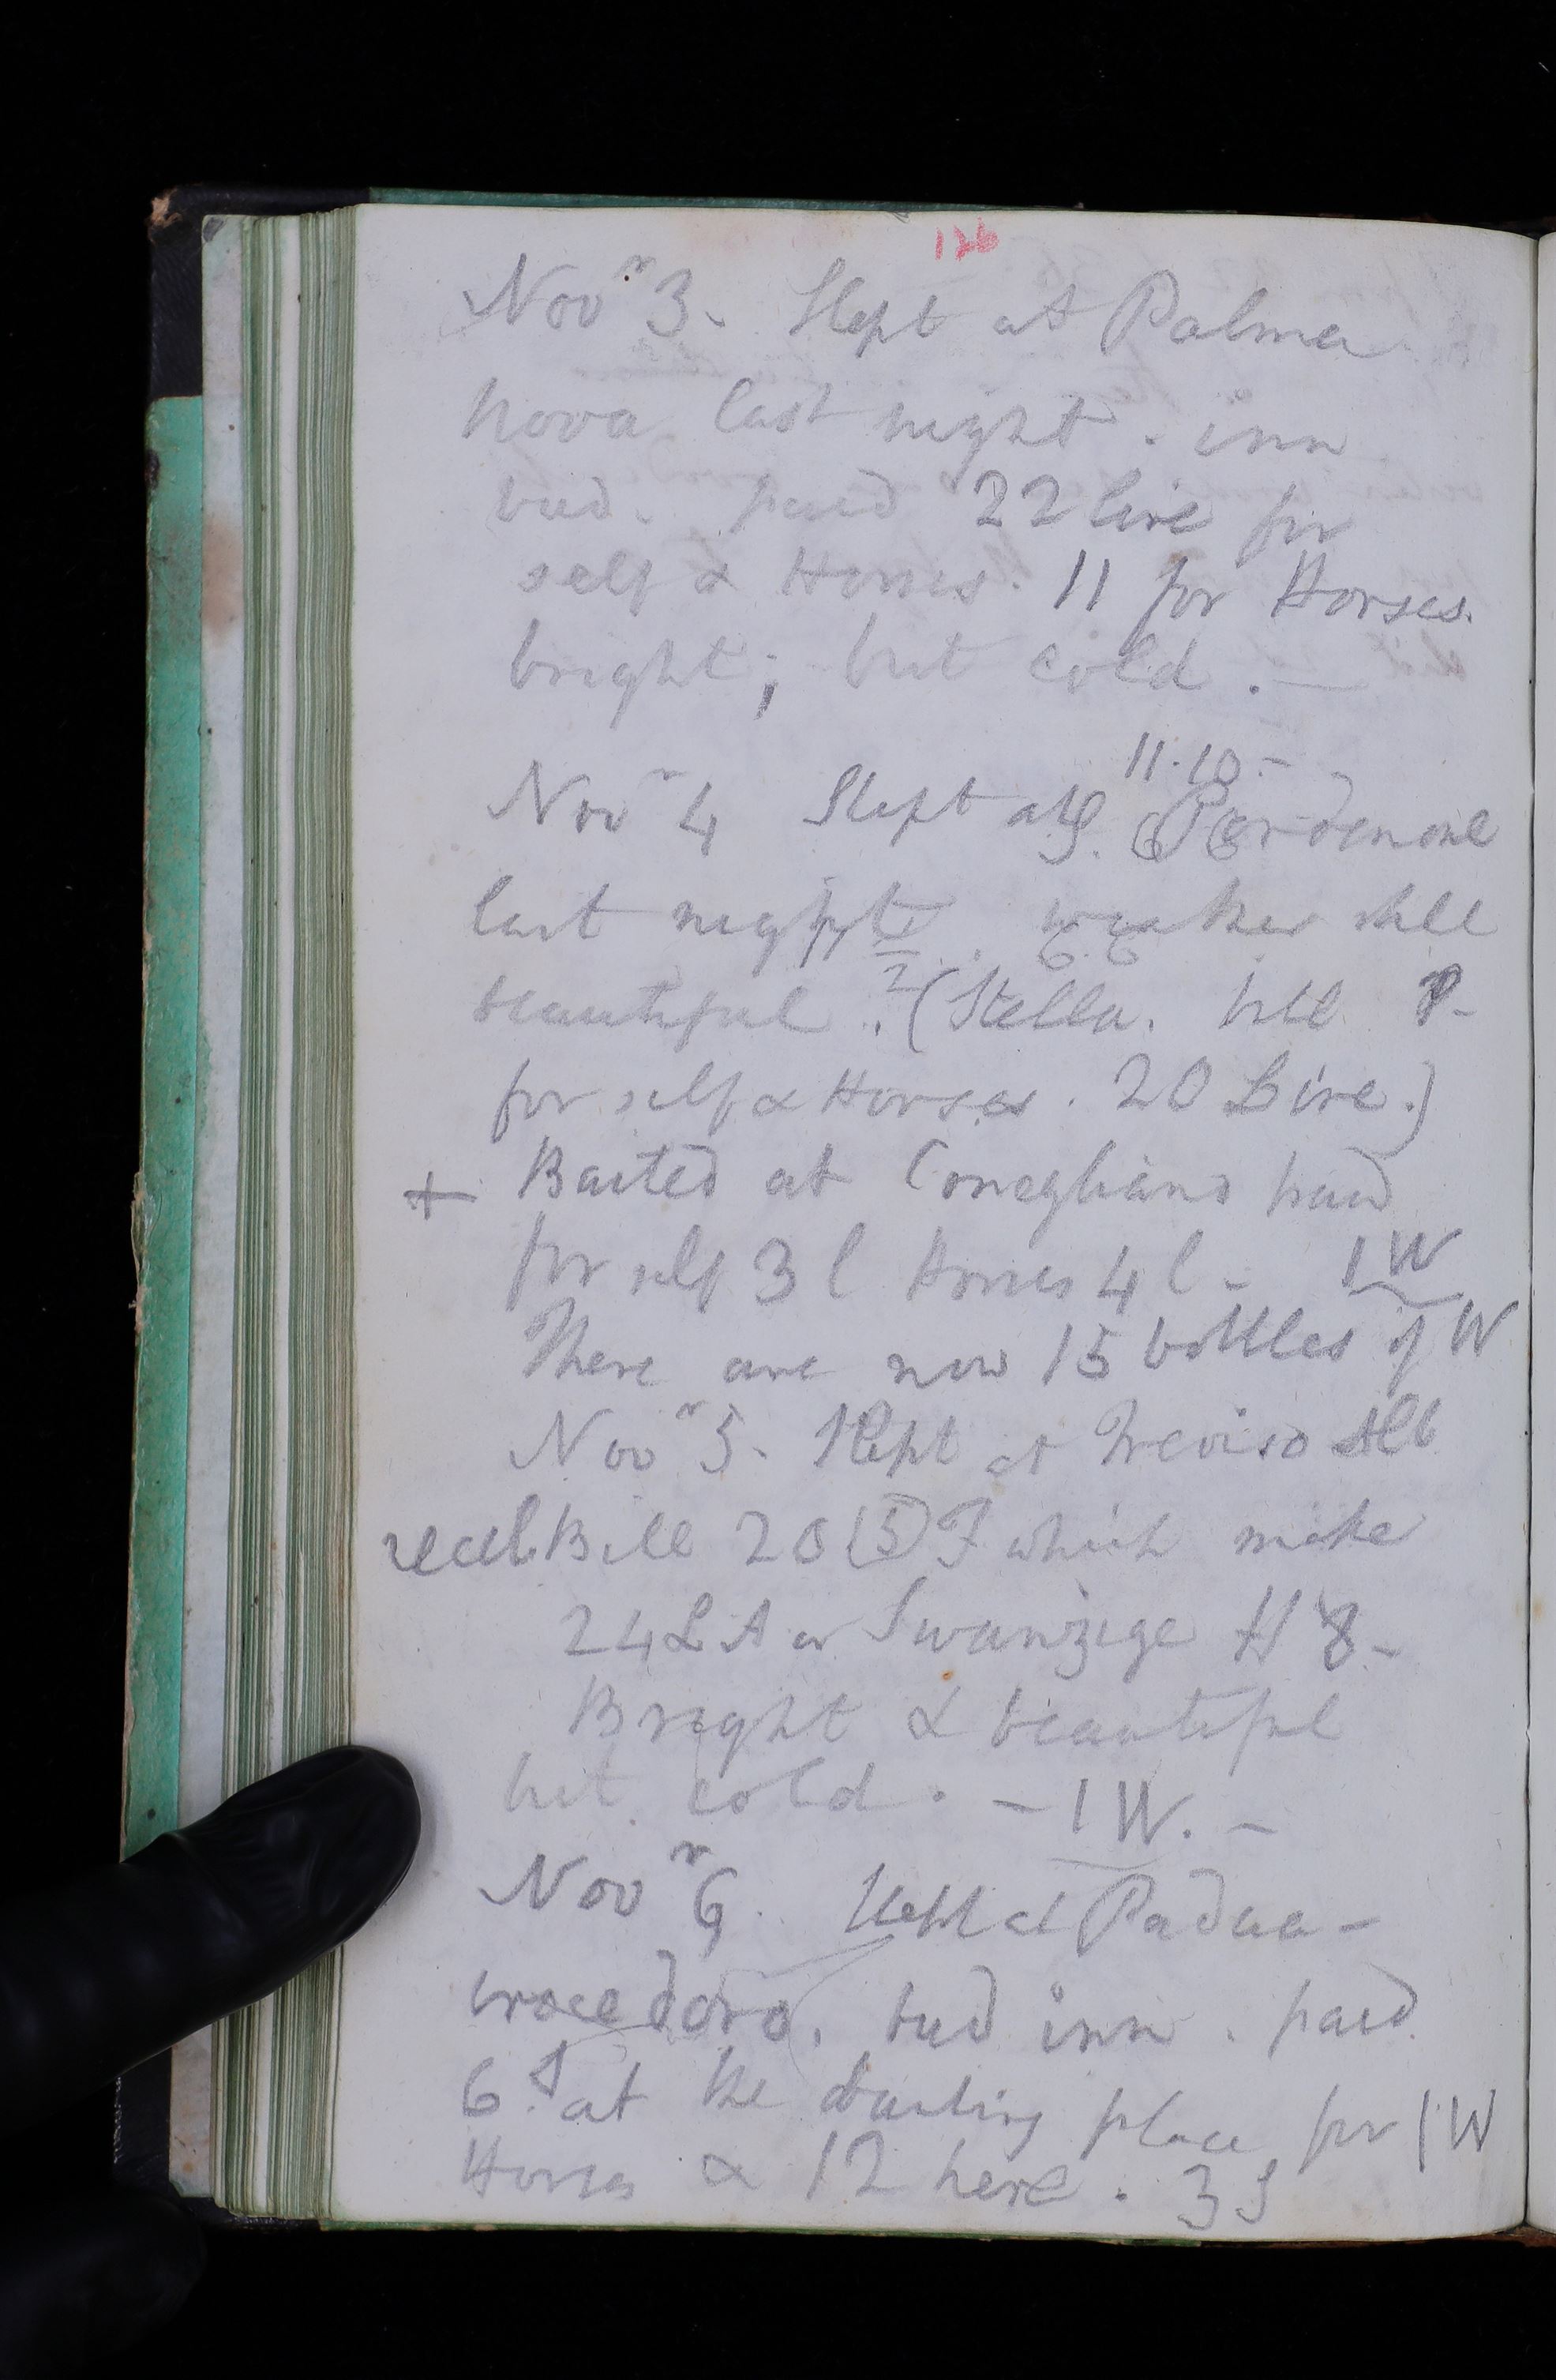 126
Novr 3. Slept at Palma
nova last night. inn
bad. paid 22 lire for
self & Horses. 11 for Horses.
bright; but cold. —
11.10 -
Novr 4 Slept at Pordenone
last night. weather still
beautiful. (Stella.
for self & Horses. 20 Lire.)
+ Baited at Conegliano paid
for self 3 l Horses 4 l - 1 W
There are now 15 bottles of W
Novr 5. Slept at Treviso Alb
reale Bill 20 (5) F which make
24 L A or Swanzige H 8 -
Bright & beautiful
but cold. - 1 W. -
Novr 6. Slept at Padua -
croce doro. bad inn. paid
6. at the baiting place for 1 W
Horses & 12 here.